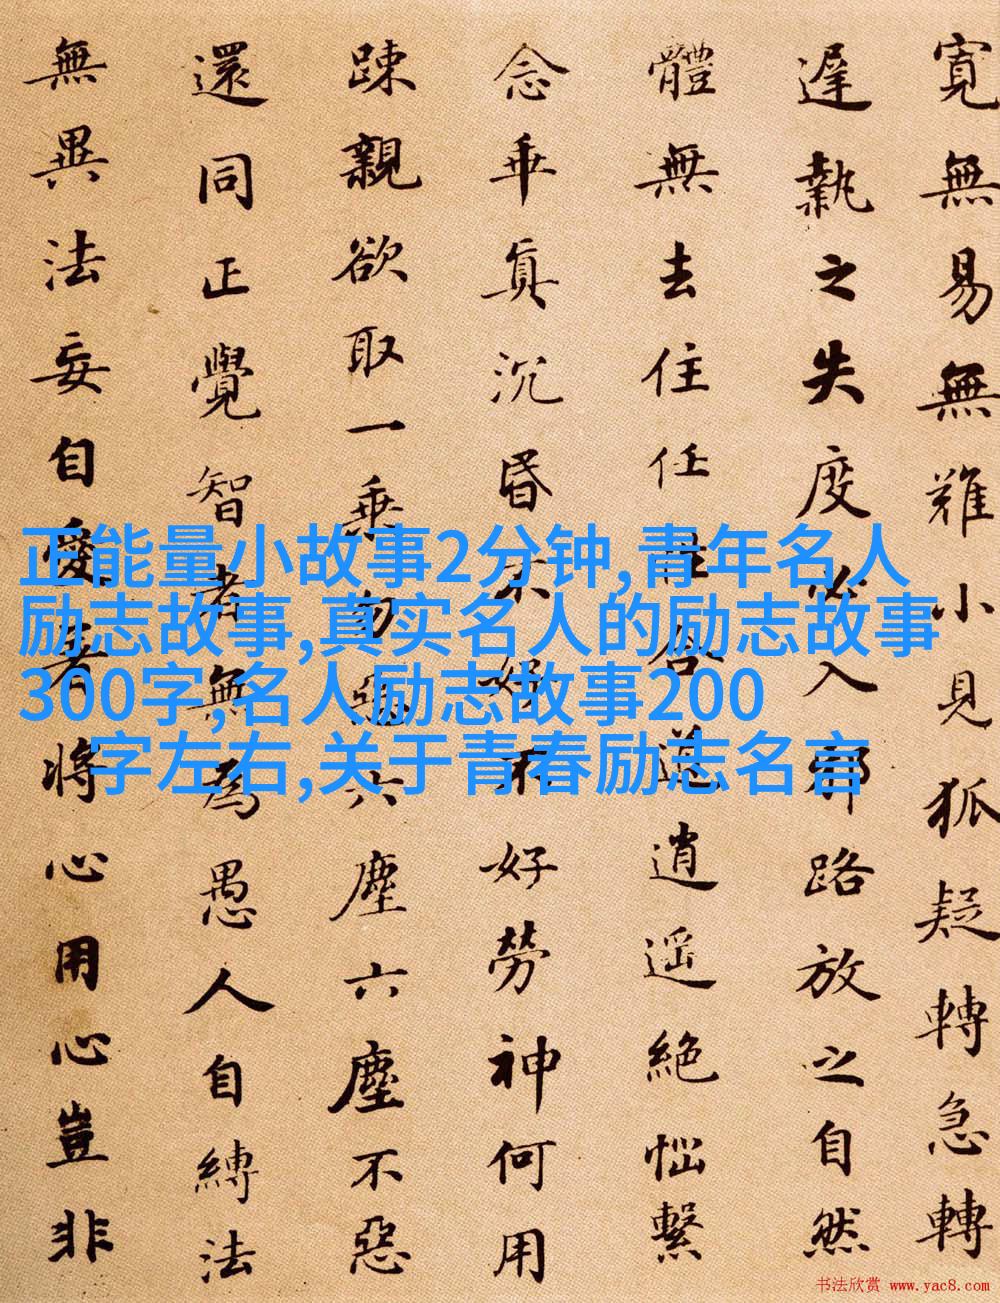 寬無易無難小見狐疑轉急轉
遲執之失度必入邪路放之自然
體無去住任性合道逍遥絶惱繫
念乖真沉昏不好不好勞神何用
踈親欲取一乘勿惡六塵六塵不惡
還同正覺智者無為愚人自縛法
無異法妄自愛著將心用心豈非
正能量小故事2分钟,青年名人
励志故事,真实名人的励志故事
300字,名人励志故事200
字左右,关于青春励志名言
书法欣赏 www.yac8.com